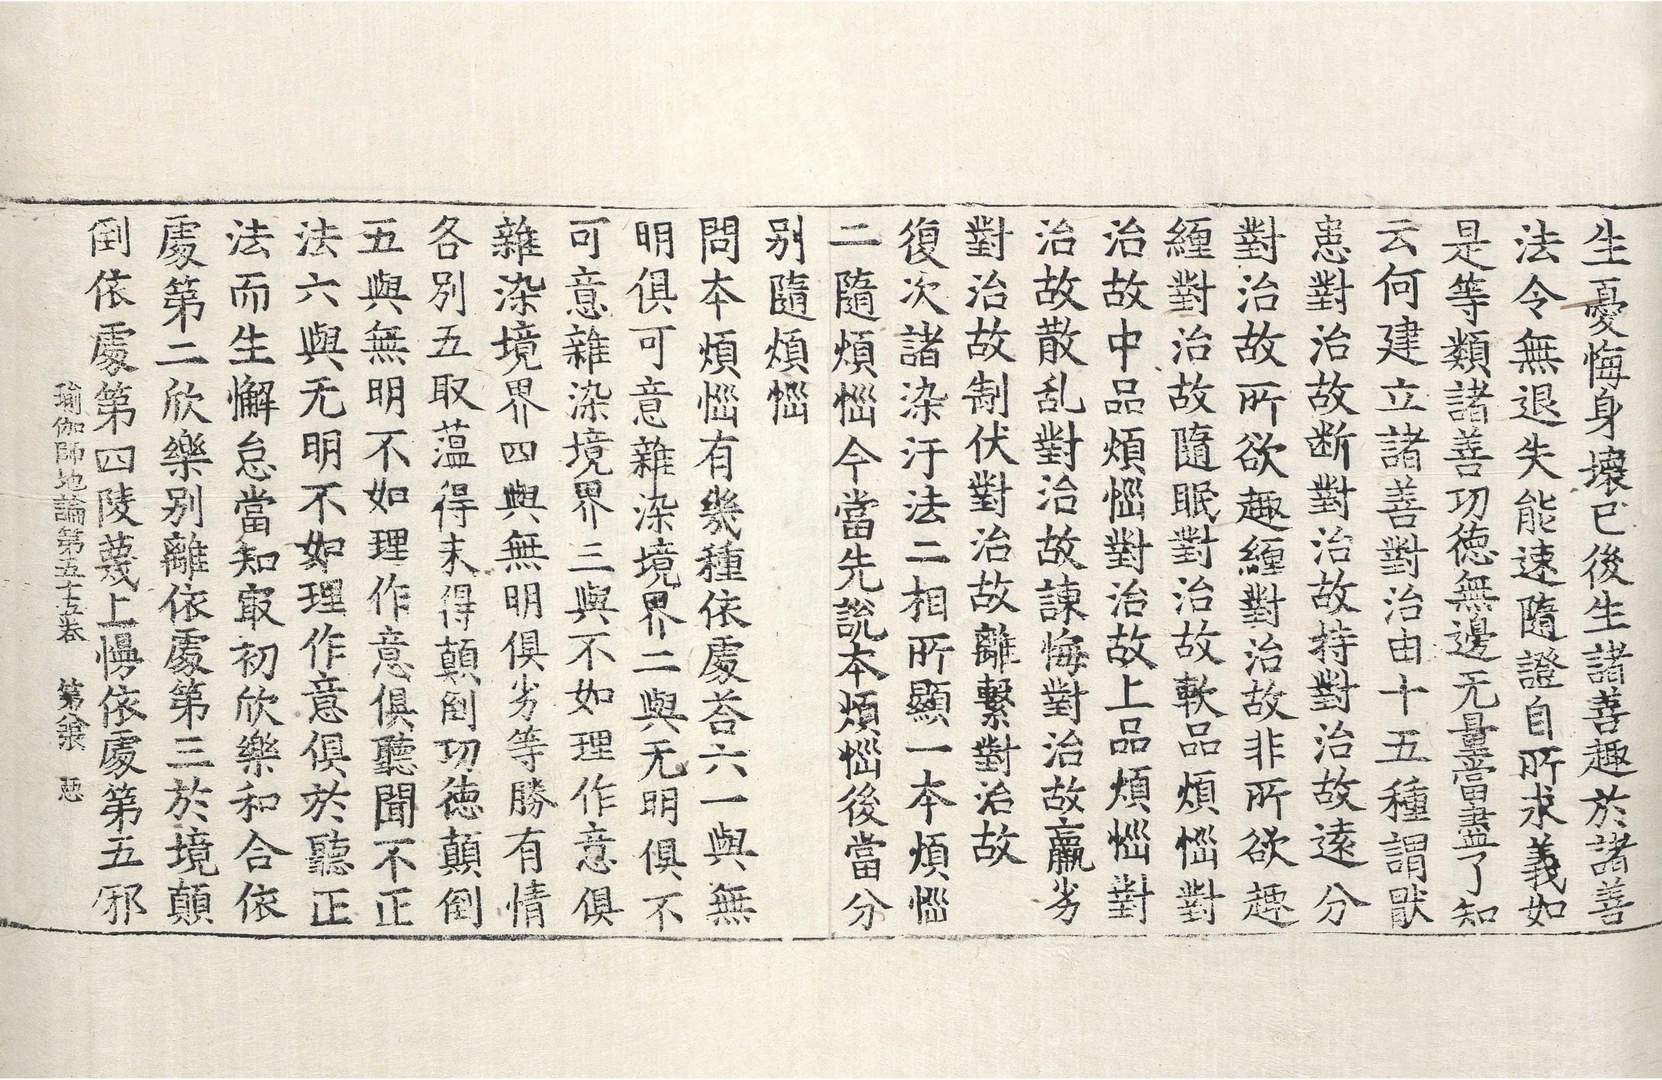 生憂悔身壞已後生諸善趣於諸善
法令無退失能速隨證自所求義如
是等類諸善功徳無邊无量當盡了知
云何建立諸善對治由十五種謂猒
患對治故断對治故持對治故遠分
對治故所欲趣纏對治故非所欲趣
纏對治故隨眠對治故軟品煩惱對
治故中品煩惱對治故上品煩惱對
治故散乱對治故諫悔對治故羸劣
對治故制伏對治故離繫對治故
復次諸染汙法二相所顯一本煩惱
二隨煩惱今當先說本煩惱後當分
別隨煩惱
問本煩惱有幾種依處荅六一與無
明俱可意雜染境界二與无明俱不
可意雜染境界三與不如理作意俱
雜染境界四與無明俱劣等勝有情
各別五取蕰得未得顛倒功徳顛倒
五與無明不如理作意俱聽聞不正
法六與无明不如理作意俱於聽正
法而生懈怠當知㝡初欣樂和合依
處第二欣樂別離依處第三於境顛
倒依處第四陵蔑上慢依處第五邪
瑜伽師地論第五十五卷 第 張 惡